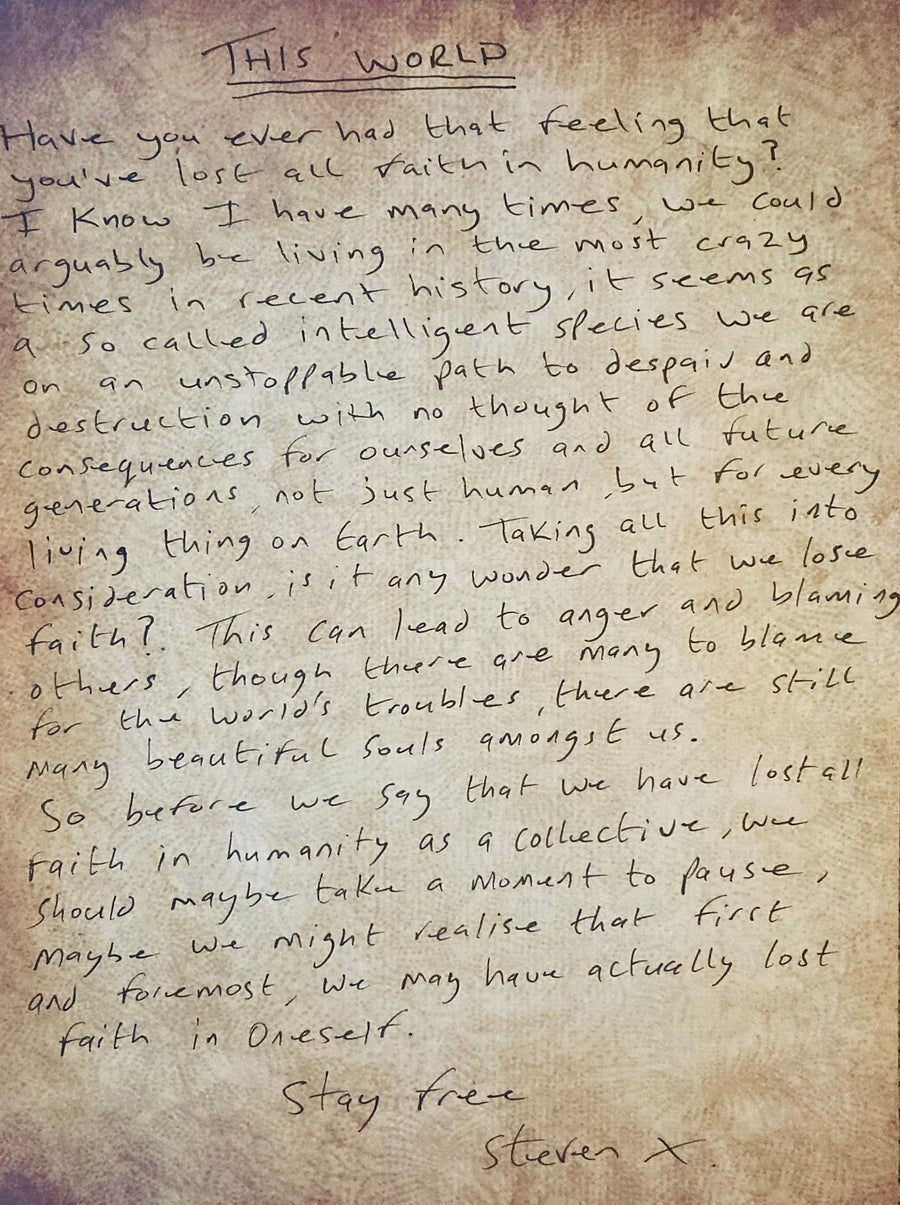 THIS WORLD
Have you ever had that feeling that
you've lost all faith in humanity?
I know I have many times, we could
arguably be living in the most crazy
times in recent history, it seems as
a so called intelligent species we are
on an unstoppable path to despair and
destruction with no thought of the
consequences for ourselves and all future
generations, not just human, but for every
living thing on Earth. Taking all this into
consideration, is it any wonder that we lose
faith?. This can lead to anger and blaming
others, though there are many to blame
for the world's troubles, there are still
many beautiful souls amongst us.
So before we say that we have lost all
faith in humanity as a collective, we
should maybe take a moment to pause,
maybe we might realise that first
and foremost, we may have actually lost
faith in Oneself.
Stay free
Steven X.